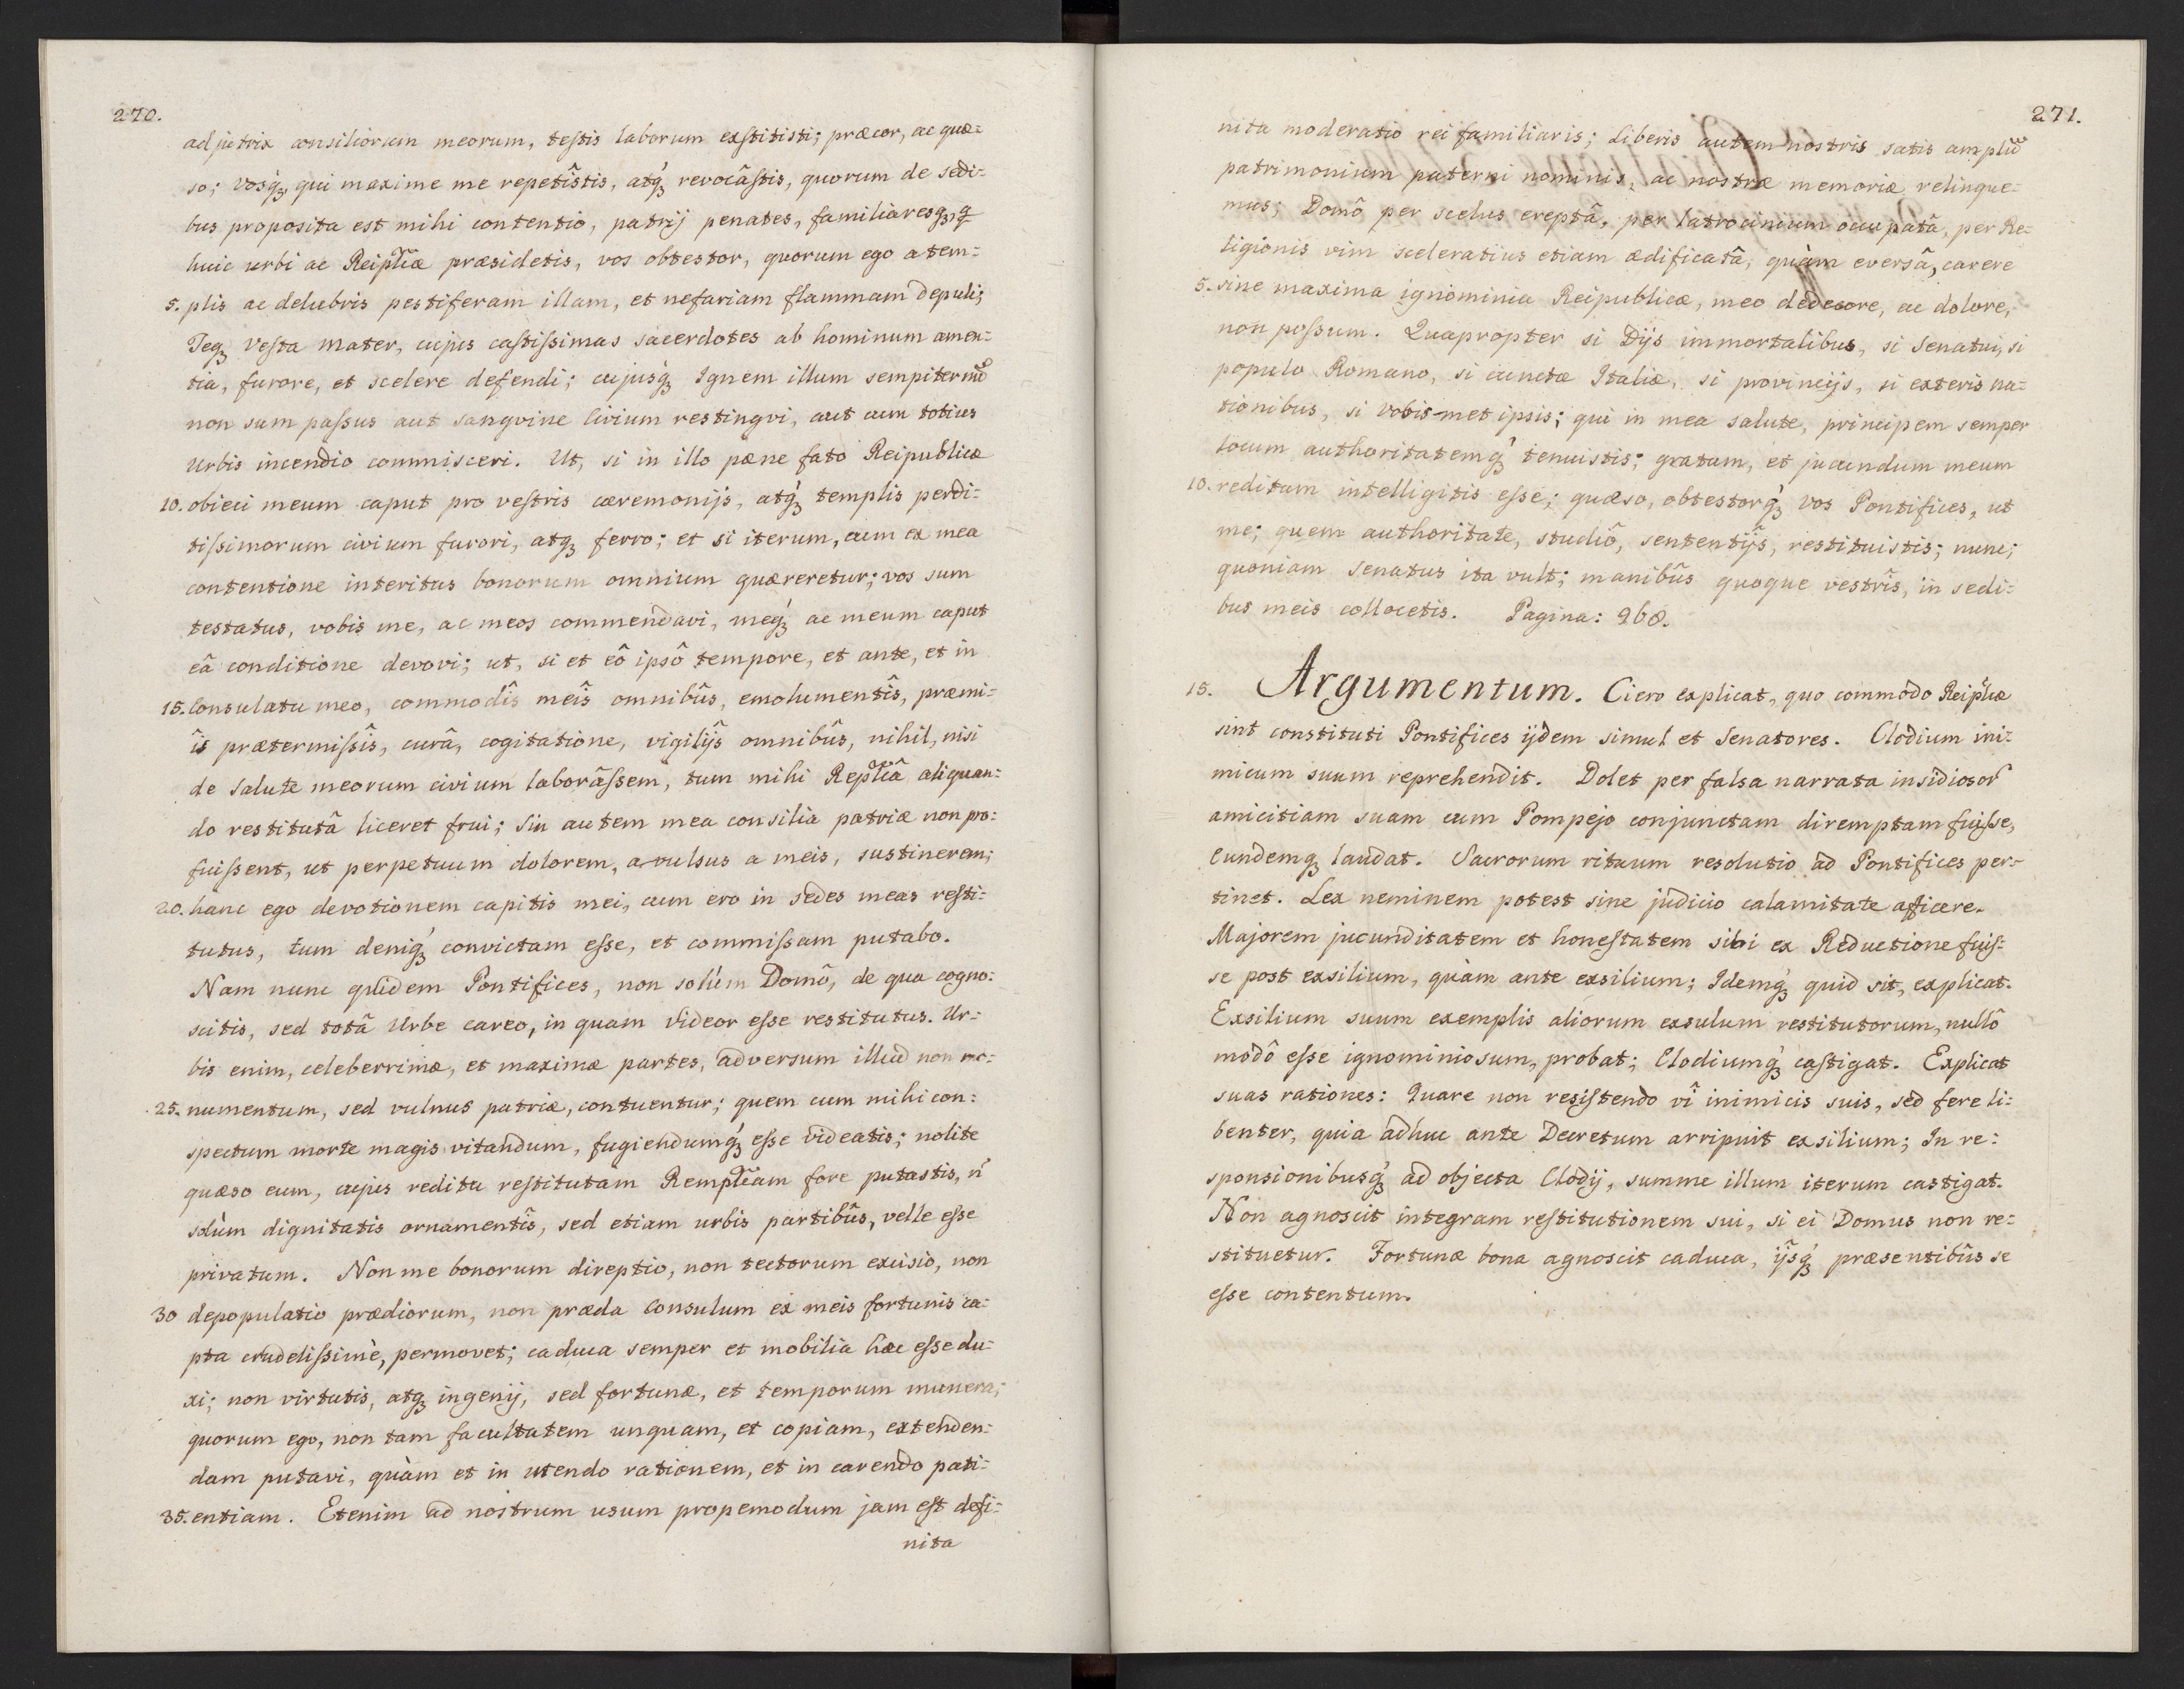 270.
adjutrix consiliorum meorum, testis laborum exstitisti; præcor, ac quæ=
so; vosq́ꝫ, qui maxime me repetîstis, atq́ꝫ revocâstis, quorum de sedi=
bus proposita est mihi contentio, patrij penates, familiaresqꝫ, q̄
huic urbi ac Reiplicæ præsidetis, vos obtestor, quorum ego a tem=
5. plis ac delubris pestiferam illam, et nefariam flammam depuli;
Teqꝫ Vesta Mater, cujus castissimas sacerdotes ab hominum amen=
tia, furore, et scelere defendi; cujusq́ꝫ Ignem illum sempiternũ
non sum passus aut sangvine Civium restingvi, aut cum totius
Urbis incendio commisceri. Ut, si in illo pæne fato Reipublicæ
10. obieci meum caput pro vestris cæremonijs, atq́ꝫ templis perdi=
tissimorum civium furori, atqꝫ ferro; et si iterum, cum ex mea
contentione interitus bonorum omnium quæreretur; vos sum
testatus, vobis me, ac meos commendavi, meq́ꝫ ac meum caput
eâ conditione devovi; ut, si et eô ipsô tempore, et ante, et in
15. Consulatu meo, commodîs meîs omnibûs, emolumentîs, præmi=
îs prætermissîs, curâ, cogitatione, vigilijs omnibûs, nihil, nisi
de salute meorum civium laborâssem, tum mihi Replicâ aliquan=
do restitutâ liceret frui; sin autem mea consilia patriæ non pro=
fuissent, ut perpetuum dolorem, avulsus a meis, sustinerem;
20. hanc ego devotionem capitis mei, cum ero in sedes meas resti=
tutus, tum deniq́ꝫ convictam esse, et commissam putabo.
Nam nunc quidem Pontifices, non solùm Domô, de qua cogno=
scitis, sed totâ Urbe careo, in quam Videor esse restitutus. Ur=
bis enim, celeberrimæ, et maximæ partes, adversum illud non mo=
25. numentum, sed vulnus patriæ, contuentur; quem cum mihi con=
spectum morte magis vitandum, fugiendumq́ꝫ esse videatis; nolite
quæso eum, cujus reditu restitutam Remplicam fore putastis, ñ
solùm dignitatis ornamentîs, sed etiam urbis partibûs, velle esse
privatum. Non me bonorum direptio, non tectorum excisio, non
30 depopulatio prædiorum, non præda Consulum ex meis fortunis ca=
pta crudelissimè, permovet; caduca semper et mobilia hæc esse du=
xi; non virtutis, atqꝫ ingenij, sed fortunæ, et temporum munera;
quorum ego, non tam facultatem unquam, et copiam, extenden=
dam putavi, quàm et in utendo rationem, et in carendo pati=
35. entiam. Etenim ad nostrum usum propemodum jam est defi=
nita
271.
nita moderatio rei familiaris; Liberis autem nostris satis amplũ
patrimonium paterni nominis, ac nostræ memoriæ relinque=
mus; Domô per scelus ereptâ, per latrocinium occupatâ, per Re=
ligionis vim sceleratius etiam ædificatâ, quàm eversâ, carere
5. sine maxima ignominia Reipublicæ, meo dedecore, ac dolore,
non possum. Quapropter si Dijs immortalibus, si Senatui, si
populo Romano, si cunctæ Italiæ, si provincijs, si exteris na=
tionibus, si vobis-met ipsis; qui in mea salute, principem semper
locum authoritatemq́ꝫ tenuistis; gratum, et jucundum meum
10. reditum intelligitis esse; quæso, obtestorq́ꝫ vos Pontifices, ut
me; quem authoritate, studiô, sententijs, restituistis; nunc;
quoniam Senatus ita vult; manibûs quoque vestrîs, in sedi=
bus meis collocetis. Pagina: 268.
15. Argumentum. Cicro explicat, quo commodo Reiplicæ
sint constituti Pontifices ijdem simul et Senatores. Clodium ini=
micum suum reprehendit. Dolet per falsa narrata insidiosor̃
amicitiam suam cum Pompejo conjunctam diremptam fuisse,
Eundemqꝫ laudat. Sacrorum rituum resolutio ad Pontifices per=
tinet. Lex neminem potest sine judicio calamitate afficere.
Majorem jucunditatem et honestatem sibi ex Reductione fuis=
se post exsilium, quàm ante exsilium; Idemq́ꝫ quid sit, explicat.
Exsilium suum exemplis aliorum exsulum restitutorum, nullô
modô esse ignominiosum, probat; Clodiumq́ꝫ castigat. Explicat
suas rationes: Quare non resistendo vî inimicis suis, sed fere li=
benter, quia adhuc ante Decretum arripuit exsilium; In re=
sponsionibusq́ꝫ ad objecta Clodij, summe illum iterum castigat.
Non agnoscit integram restitutionem sui, si ei Domus non re=
stituetur. Fortunæ bona agnoscit caduca, ijsq́ꝫ præsentibûs se
esse contentum.